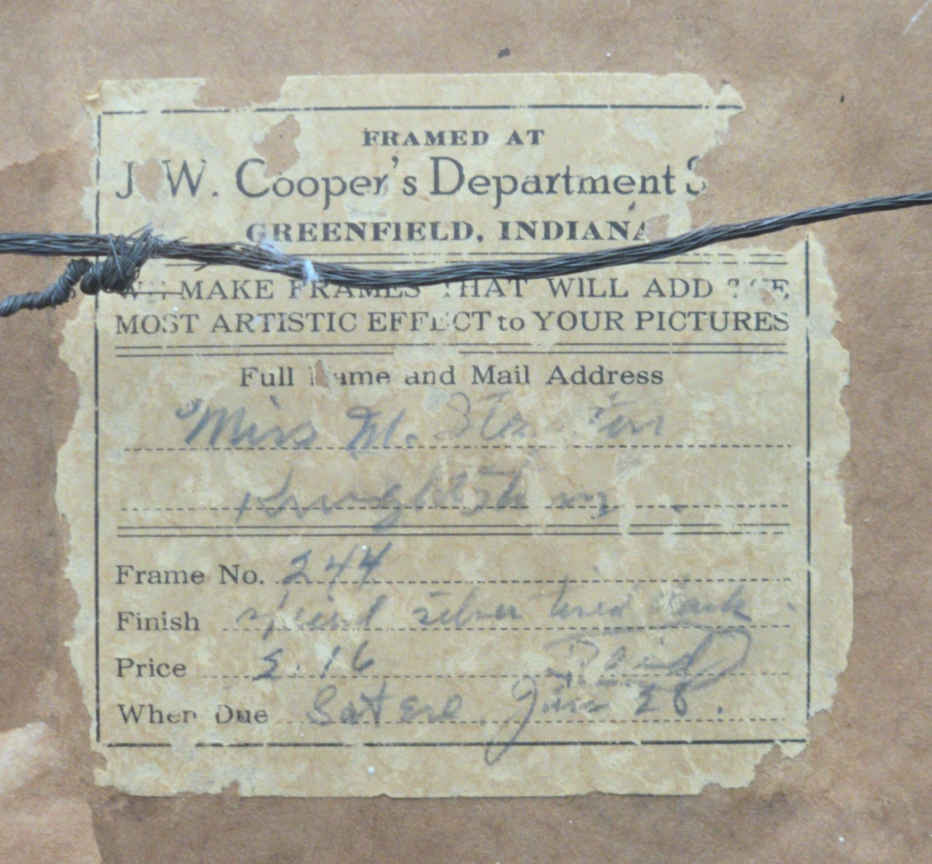 FRAMED AT
J. W. Cooper's Department
GREENFIELD, INDIANA
WE MAKE FRAMES THAT WILL ADD THE
MOST ARTISTIC EFFECT to YOUR PICTURES
Full Name and Mail Address
Miss M.
Knightstown
Frame No. 244
Finish silver toned dark
Price 5.16 Paid
When Due Sat eve Jan 28.